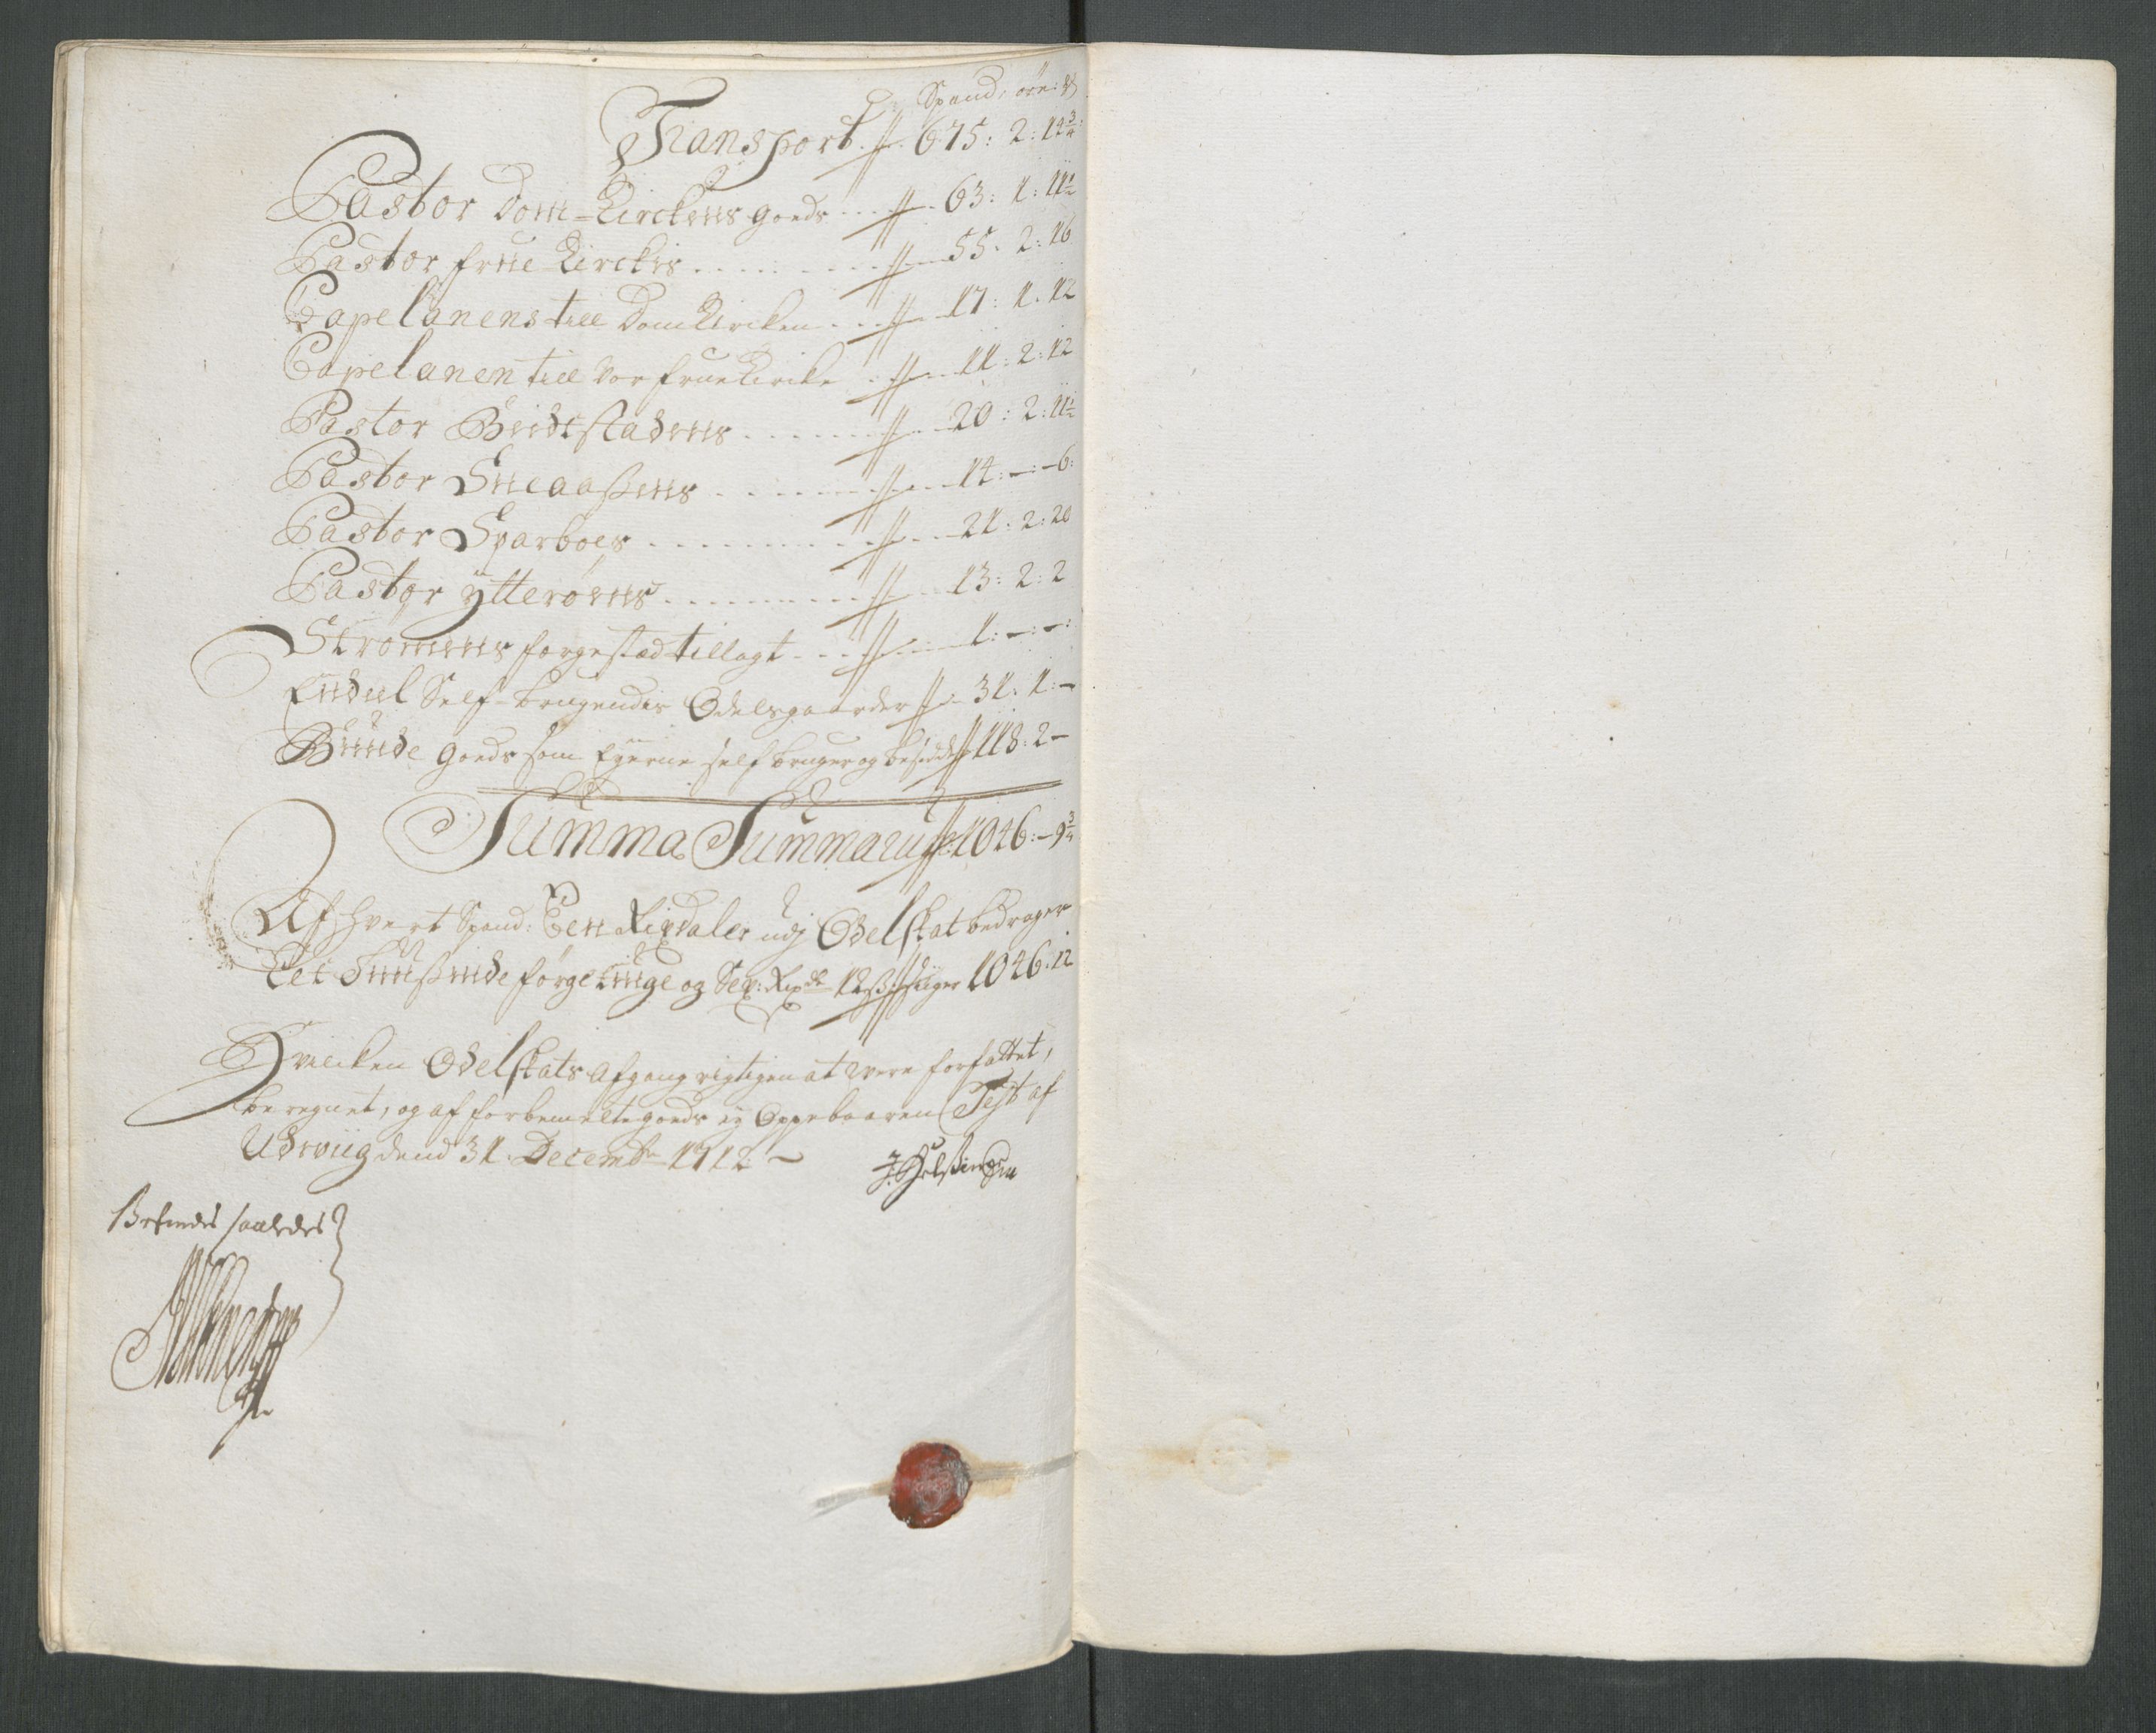 Spand: øre: 
Transport - 675: 2: 12 3/4
Pastor Dom-Kirckens goeds - 63: 1: 11 1/2
Pastor frue Kirckes - 55: 2: 16
Capelanens till Dom Kircken - 17: 1: 12
Capelanen till Vor frue Kircke - 11: 2: 12
Pastor Beidestadens - 20: 2: 11 1/2
Pastor Sneaaßens - 14: -: 6:
Pastor Sparboes - 21: 2: 20
Pastor ytterøens - 13: 2: 2
Strømmens færgestæd tillagt - 1: -: -:
Endeel Self-brugendes Odelsgaarder - 31: 1: -
Bunde goeds som Eyerne self bruger og besidder 118: 2 -
Summa Summarum 1046: - 9 3/4
Af hvert Spand: Een Rixdaler udj Odelskat bedrager
Eet Tuußende førgetuuge og Sex: Rixdr 12 ß: siiger 1046: 12
Hvilcken Odelskats afgang rigtigen at være forfattet,
beregnet, og af forbemelte goeds ey Oppebaaren Test af
Udrviig dend 31. Decembr 1712: -
Befindes saaledes